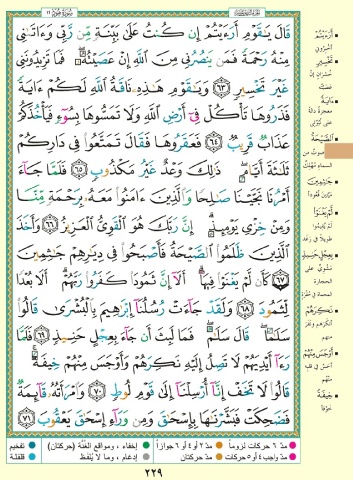 سُورَةُ هُودٍ ١١
قَالَ يَٰقَوْمِ أَرَءَيْتُمْ إِن كُنتُ عَلَىٰ بَيِّنَةٍ مِّن رَّبِّى وَءَاتَىٰنِى
مِنْهُ رَحْمَةً فَمَن يَنصُرُنِى مِنَ ٱللَّهِ إِنْ عَصَيْتُهُۥ فَمَا تَزِيدُونَنِى
غَيْرَ تَخْسِيرٍ ٦٣ وَيَٰقَوْمِ هَٰذِهِۦ نَاقَةُ ٱللَّهِ لَكُمْ ءَايَةً
فَذَرُوهَا تَأْكُلْ فِىٓ أَرْضِ ٱللَّهِ وَلَا تَمَسُّوهَا بِسُوٓءٍ فَيَأْخُذَكُمْ
عَذَابٌ قَرِيبٌ ٦٤ فَعَقَرُوهَا فَقَالَ تَمَتَّعُوا۟ فِى دَارِكُمْ
ثَلَٰثَةَ أَيَّامٍ ذَٰلِكَ وَعْدٌ غَيْرُ مَكْذُوبٍ ٦٥ فَلَمَّا جَآءَ
أَمْرُنَا نَجَّيْنَا صَٰلِحًا وَٱلَّذِينَ ءَامَنُوا۟ مَعَهُۥ بِرَحْمَةٍ مِّنَّا
وَمِنْ خِزْىِ يَوْمِئِذٍ إِنَّ رَبَّكَ هُوَ ٱلْقَوِىُّ ٱلْعَزِيزُ ٦٦ وَأَخَذَ
ٱلَّذِينَ ظَلَمُوا۟ ٱلصَّيْحَةُ فَأَصْبَحُوا۟ فِى دِيَٰرِهِمْ جَٰثِمِينَ
٦٧ كَأَن لَّمْ يَغْنَوْا۟ فِيهَآ أَلَآ إِنَّ ثَمُودَا۟ كَفَرُوا۟ رَبَّهُمْ أَلَا بُعْدًا
لِّثَمُودَ ٦٨ وَلَقَدْ جَآءَتْ رُسُلُنَآ إِبْرَٰهِيمَ بِٱلْبُشْرَىٰ قَالُوا۟
سَلَٰمًا قَالَ سَلَٰمٌ فَمَا لَبِثَ أَن جَآءَ بِعِجْلٍ حَنِيذٍ ٦٩ فَلَمَّا
رَءَآ أَيْدِيَهُمْ لَا تَصِلُ إِلَيْهِ نَكِرَهُمْ وَأَوْجَسَ مِنْهُمْ خِيفَةً
قَالُوا۟ لَا تَخَفْ إِنَّآ أُرْسِلْنَآ إِلَىٰ قَوْمِ لُوطٍ ٧٠ وَٱمْرَأَتُهُۥ قَآئِمَةٌ
فَضَحِكَتْ فَبَشَّرْنَٰهَا بِإِسْحَٰقَ وَمِن وَرَآءِ إِسْحَٰقَ يَعْقُوبَ ٧١
أَرَءَيْتُمْ
أخبروني
تَخْسِيرٍ
ءَايَةً
معجزة دالة
الصَّيْحَةُ
صوت من
السماء مهلك
جَٰثِمِينَ
لَّمْ يَغْنَوْا
بِعِجْلٍ حَنِيذٍ
مشوي على
الحجارة
نَكِرَهُمْ
أنكرهم ونفر
منهم
أَوْجَسَ مِنْهُمْ
منهم
خِيفَةً
خوفاً
مدّ ٦ حركات لزوماً مدّ ٢ أو ٤ أو ٦ جوازاً إخفاء، ومواقع الغُنَّة (حركتان) تفخيم
مدّ واجب ٤ أو ٥ حركات مدّ حركتان إدغام، وما لا يُلفَظ قلقلة
٢٢٩